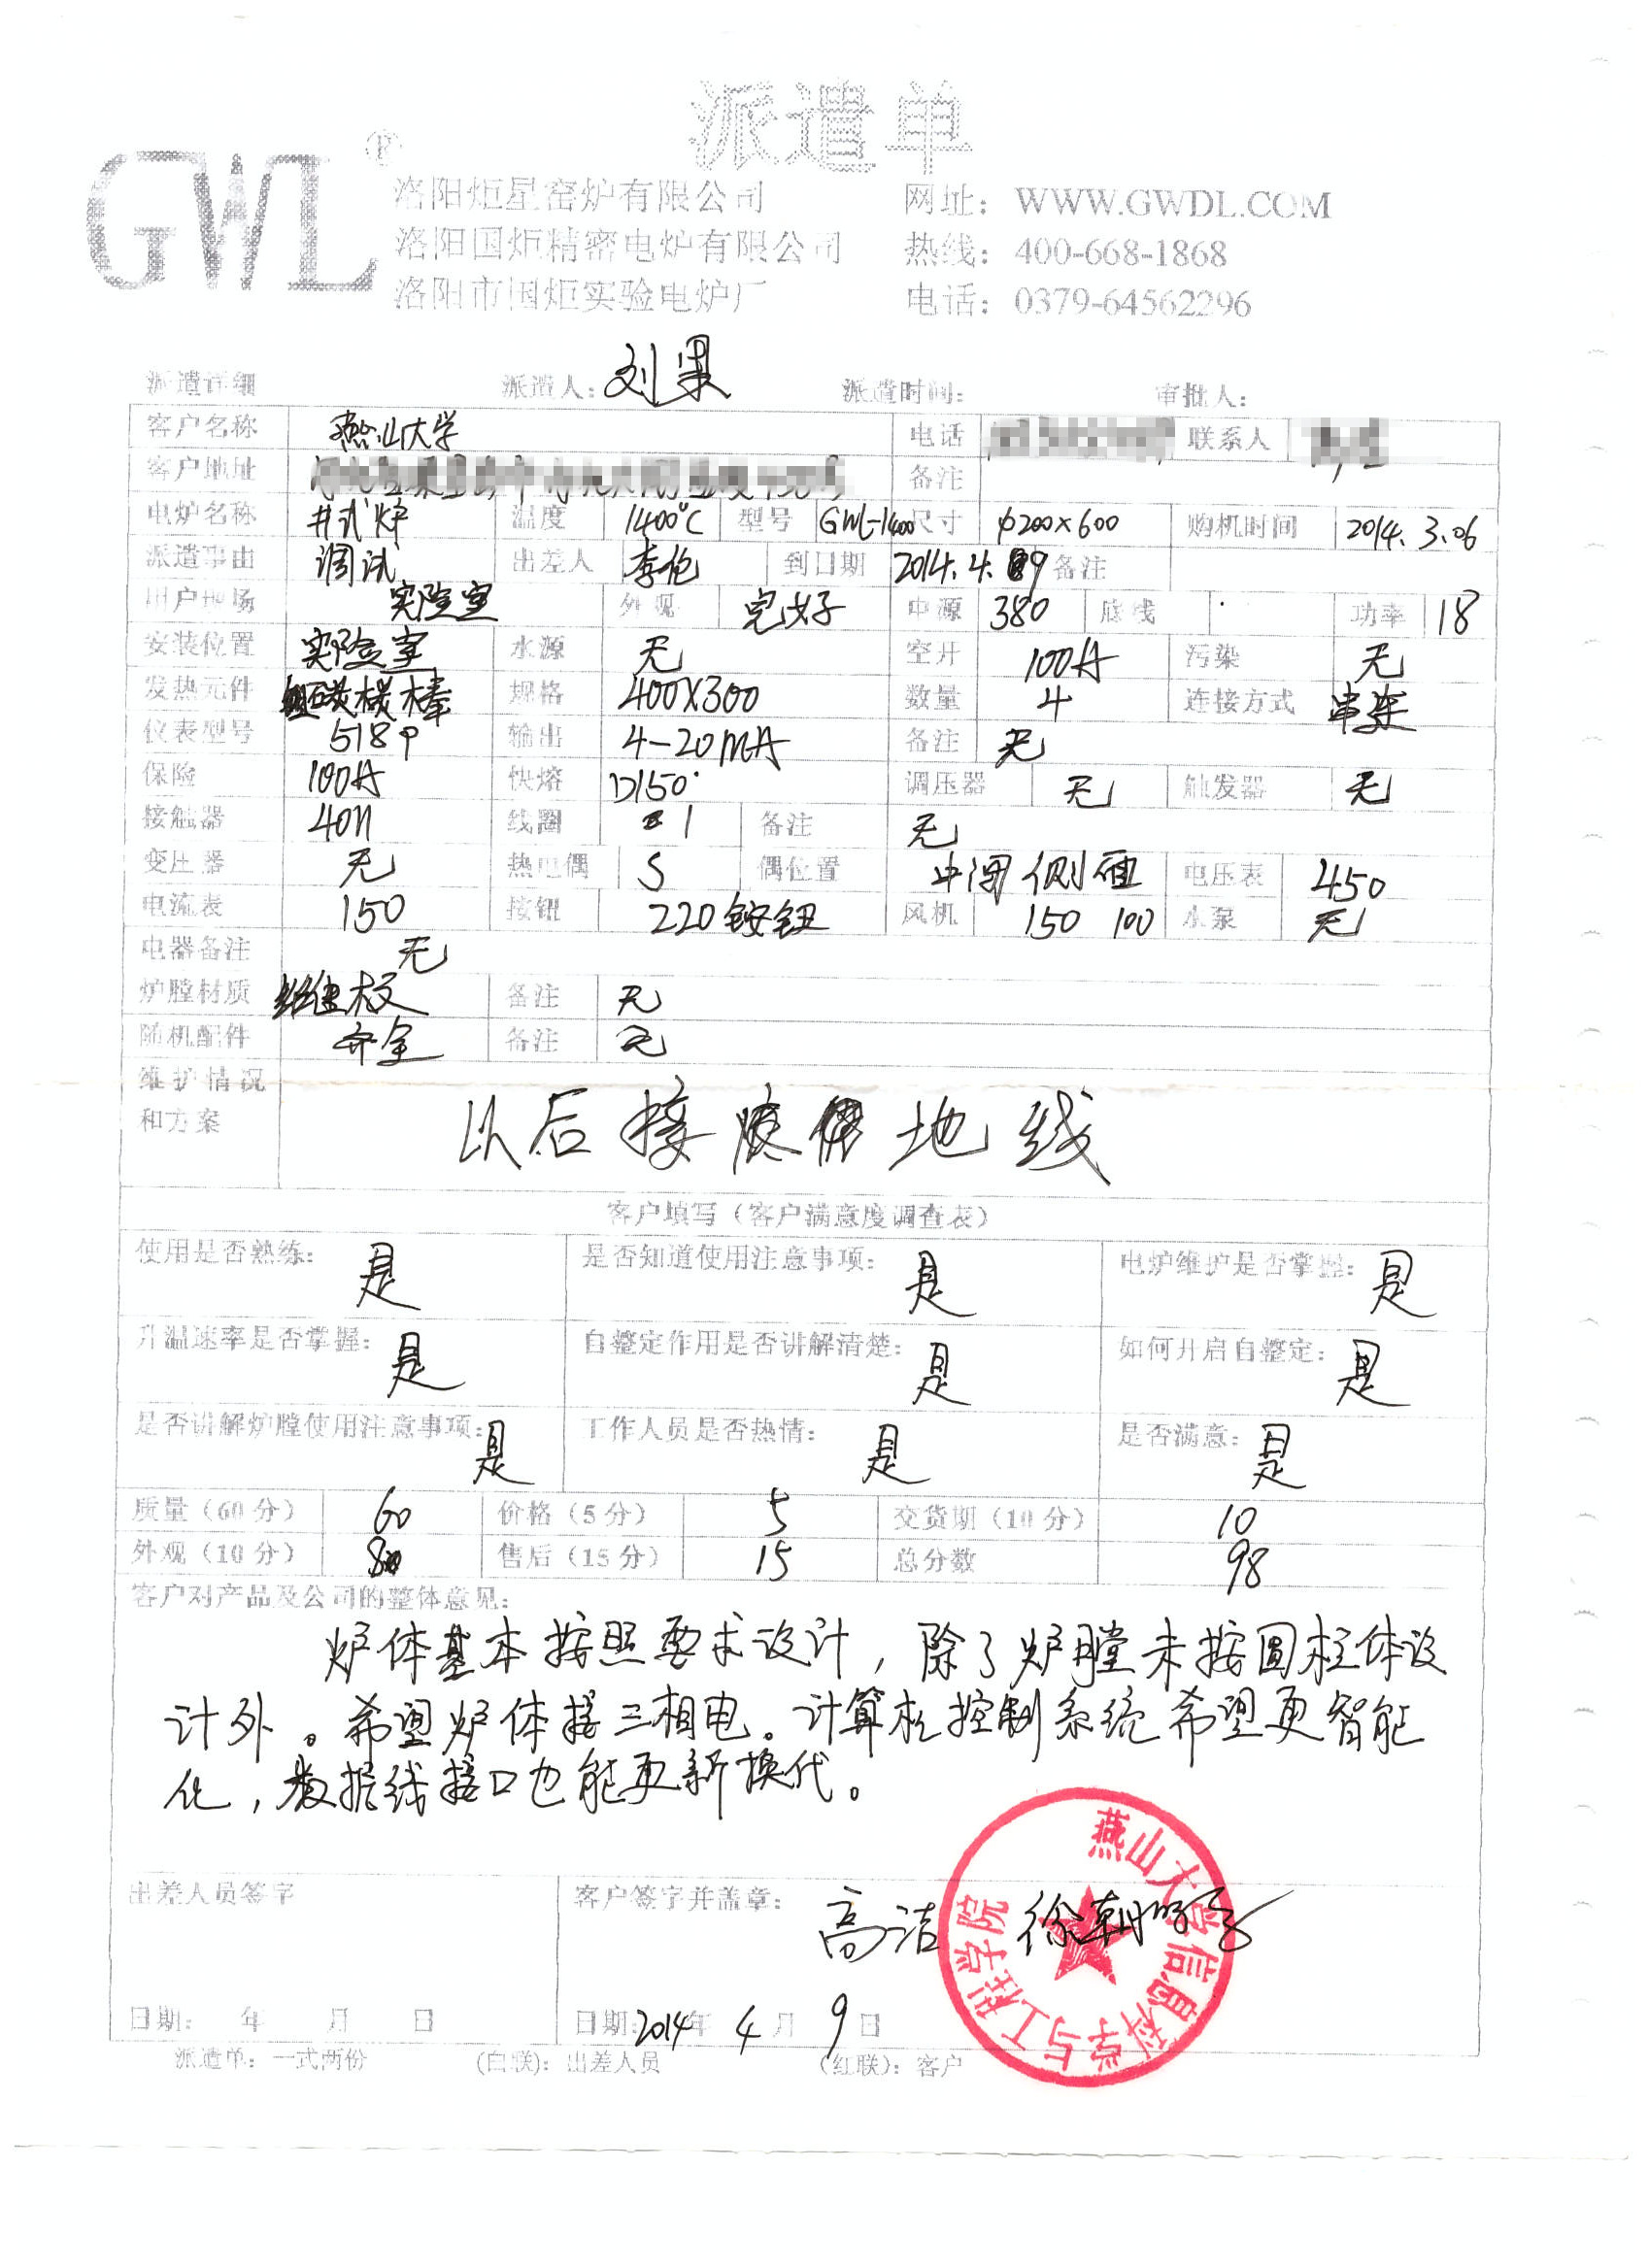 派遣单
GWL®
洛阳炬星窑炉有限公司 网址：WWW.GWDL.COM
洛阳国炬精密电炉有限公司 热线：400-668-1868
洛阳市国炬实验电炉厂 电话：0379-64562296
派遣详细 派遣人：刘果 派遣时间： 审批人：
客户名称 燕山大学 电话 联系人
客户地址 备注
电炉名称 井式炉 温度 1400℃ 型号 GWL-1400 尺寸 φ200×600 购机时间 2014.3.06
派遣事由 调试 出差人 李伦 到日期 2014.4.9 备注
用户现场 实验室 外观 完好 电源 380 底线 功率 18
安装位置 实验室 水源 无 空开 100A 污染 无
发热元件 硅碳棒 规格 400×300 数量 4 连接方式 串连
仪表型号 518P 输出 4-20MA 备注 无
保险 100A 快熔 D150 调压器 无 触发器 无
接触器 4011 线圈 1 备注 无
变压器 无 热电偶 S 偶位置 中间侧面 电压表 450
电流表 150 按钮 220铵钮 风机 150 100 水泵 无
电器备注 无
炉膛材质 纤维板 备注 无
随机配件 齐全 备注 无
维护情况
和方案 以后接 地线
客户填写（客户满意度调查表）
使用是否熟练：是 是否知道使用注意事项：是 电炉维护是否掌握：是
升温速率是否掌握：是 自整定作用是否讲解清楚：是 如何开启自整定：是
是否讲解炉膛使用注意事项：是 工作人员是否热情：是 是否满意：是
质量（60分） 60 价格（5分） 5 交货期（10分） 10
外观（10分） 8 售后（15分） 15 总分数 98
客户对产品及公司的整体意见：
炉体基本按照要求设计，除了炉膛未按圆柱体设
计外。希望炉体接三相电。计算机控制系统希望更智能
化，数据线接口也能更新换代。
出差人员签字 客户签字并盖章：高洁 徐朝
燕山大学信息科学与工程学院
日期： 年 月 日 日期：2014年4月9日
派遣单：一式两份 （白联）：出差人员 （红联）：客户